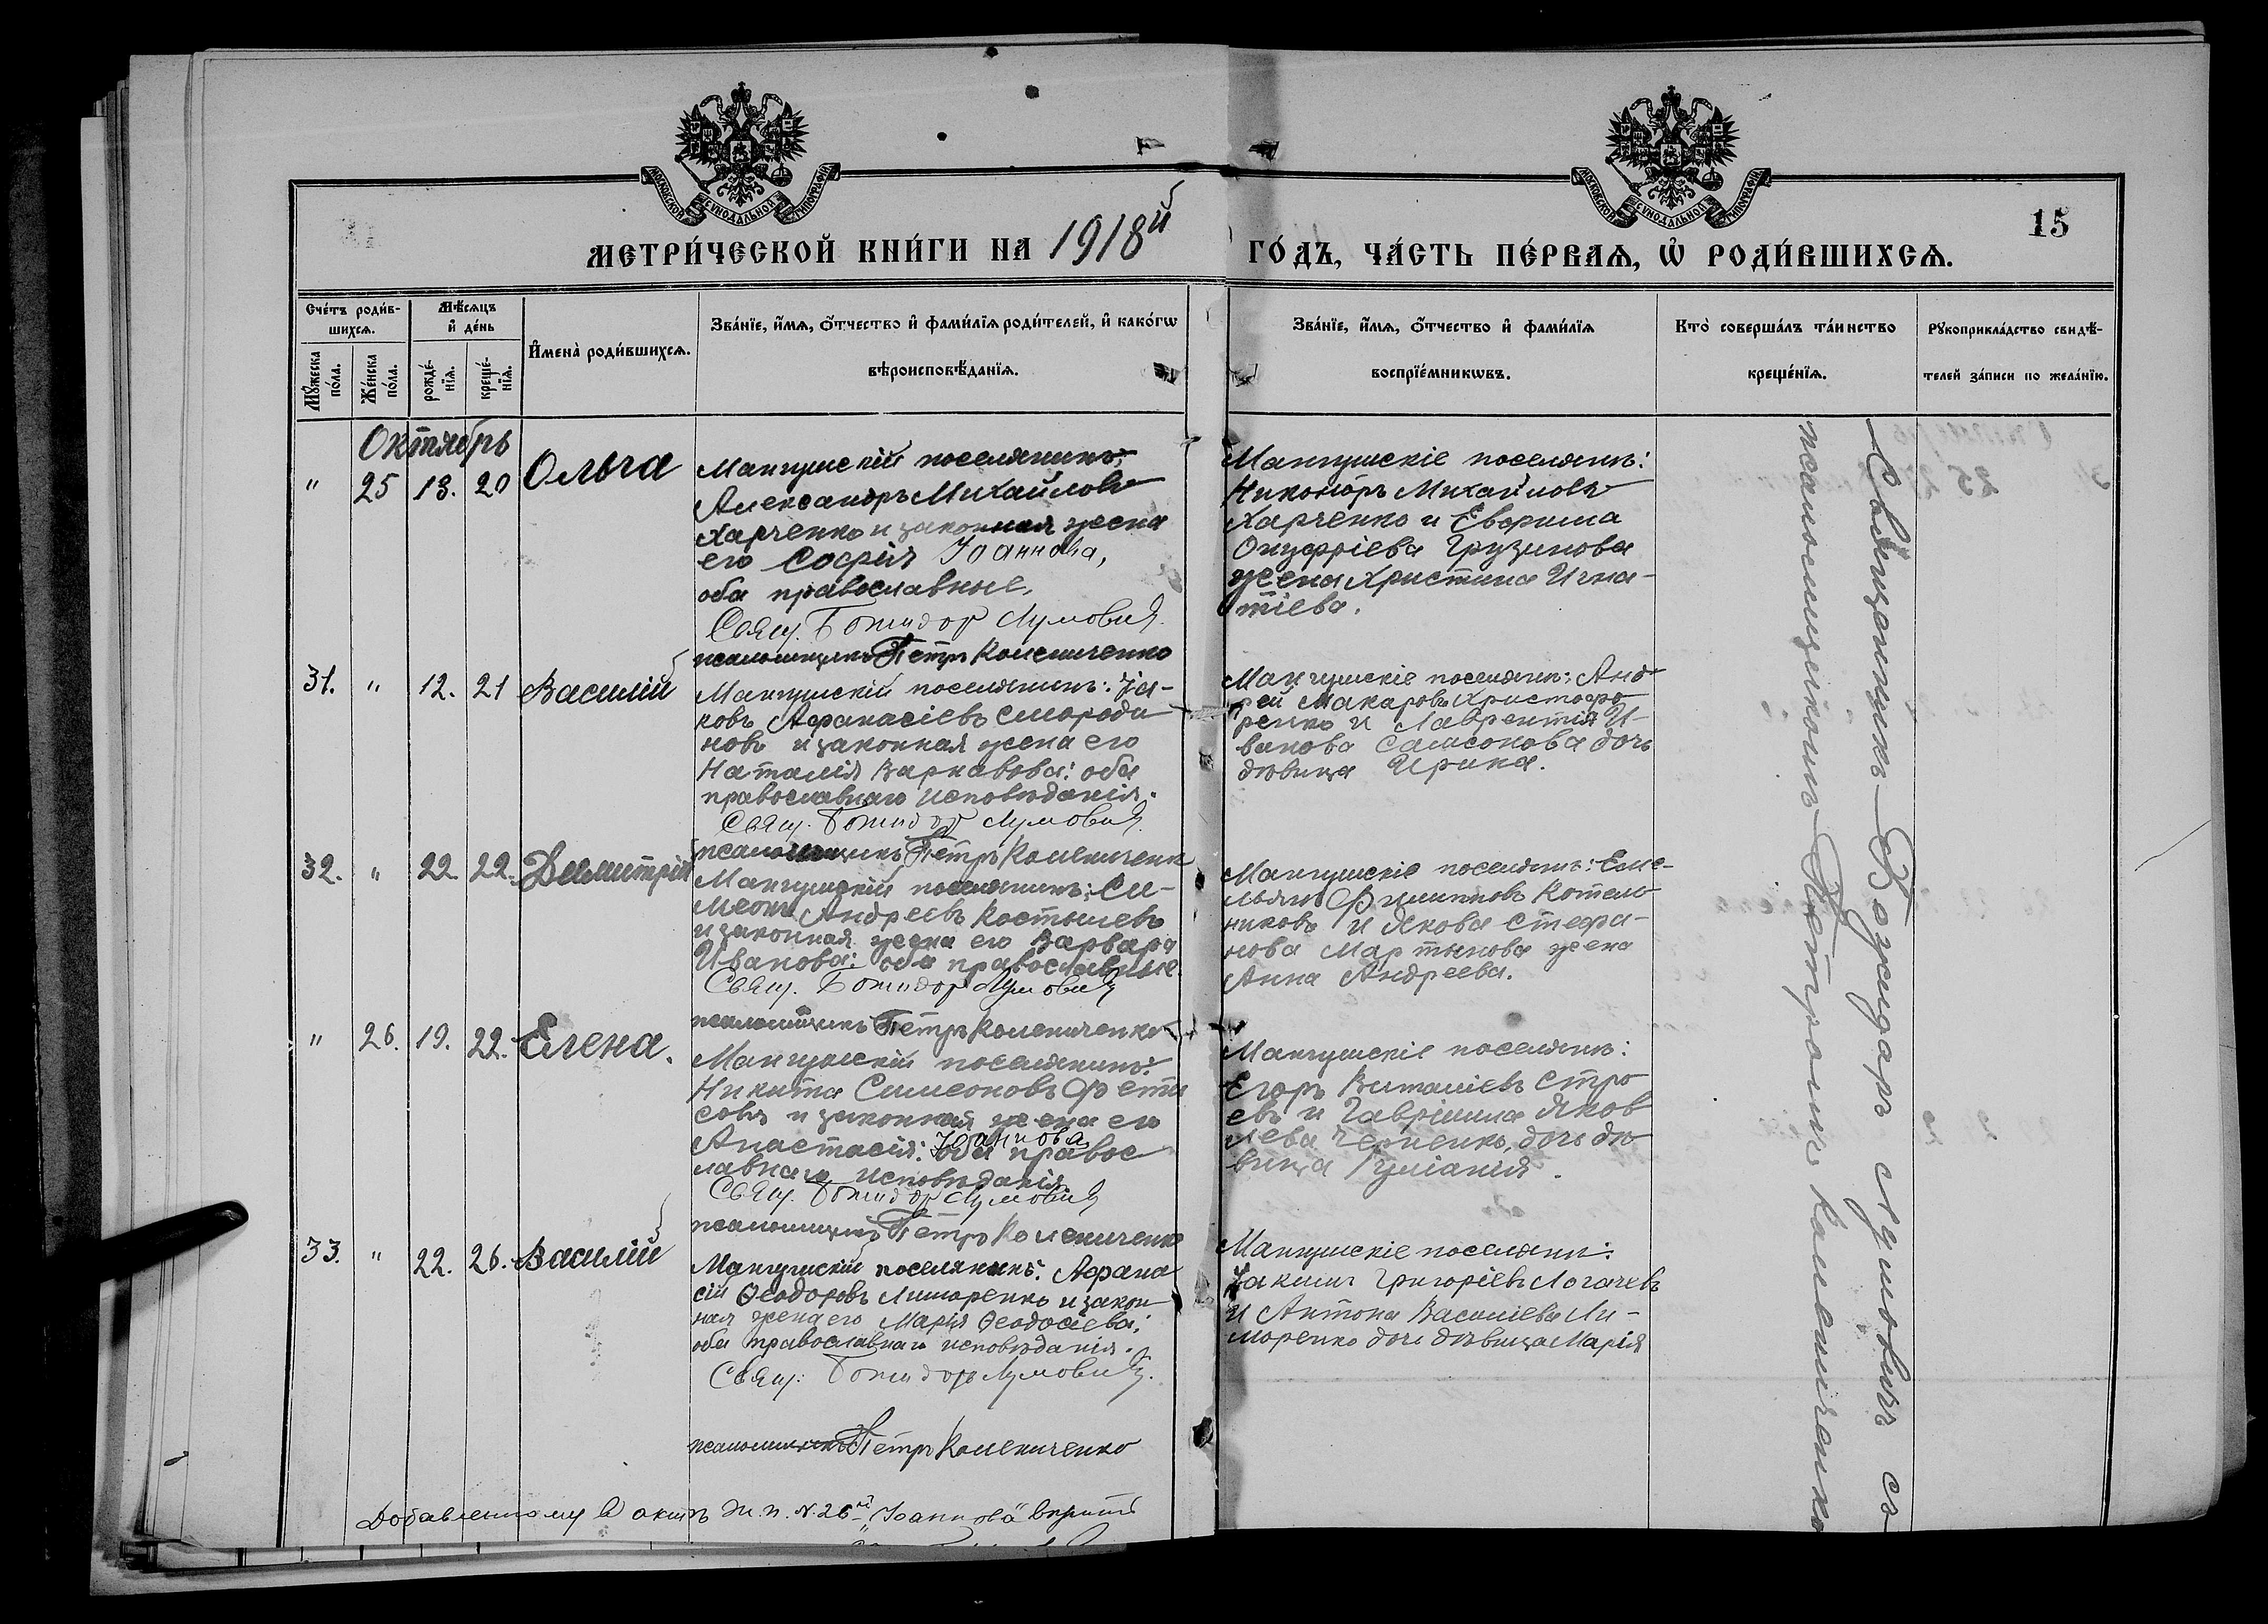 МОСКОВСКОЙ СѴНОДАЛЬНОЙ ТИПОГРАФІИ
МОСКОВСКОЙ СѴНОДАЛЬНОЙ ТИПОГРАФІИ
15
МЕТРИ́ЧЕСКОЙ КНИ́ГИ НА 1918й ГО́ДЪ, ЧА́СТЬ ПЕ́РВАѦ, Ѽ РОДИ́ВШИХСѦ.
Сче́тъ роди́в-
шихсѧ.
Мѣ́сѧцъ
и҆ де́нь
И҆мена̀ роди́вшихсѧ.
Зва́нїе, и҆́мѧ, ѻ҆́тчество и҆ фами́лїѧ роди́телей, и҆ како́гѡ
вѣроисповѣ́данїѧ.
Мꙋ́жеска
по́ла.
Же́нска
по́ла.
рожде́-
нїѧ.
креще́-
нїѧ.
Зва́нїе, и҆́мѧ, ѻ҆́тчество и҆ фами́лїѧ
воспрїе́мникѡвъ.
Кто̀ соверша́лъ та́инство
креще́нїѧ.
Рꙋкоприкла́дство свидѣ́-
телей за́писи по жела́нїю.
Октябрь
" 25 13. 20 Ольга
Мангушскій поселянинъ:
Александръ Михайловъ
Харченко и законная жена
его Софія Іоаннова,
оба православные.
Свящ. Божидар Лумовић.
псаломщикъ Петръ Колениченко
Мангушскіе поселяне:
Никоноръ Михайловъ
Харченко и Евфима
Онуфріева Грузинова
жена Христина Игна-
тіева.
31. " 12. 21 Василій
Мангушскій поселянинъ: Іа-
ковъ Афанасіевъ Смороди
новъ и законная жена его
Наталія Варнавова: оба
православнаго исповѣданія.
Свящ. Божидар Лумовић.
псаломщикъ Петръ Колениченко
Мангушскіе поселяне: Анд
рей Макаровъ Христофо
ренко и Лаврентія И-
ванова Самсонова дочь
дѣвица Ирина.
32. " 22. 22. Димитрій
Мангушскій поселянинъ: Си-
меонъ Андреевъ Костылевъ
и законная жена его Варвара
Иванова: оба православные.
Свящ. Божидар Лумовић
псаломщикъ Петръ Колениченко
Мангушскіе поселяне: Еме-
льянъ Филипповъ Котель
никовъ и Якова Стефа-
нова Мартынова жена
Анна Андреева.
" 26. 19. 22. Елена.
Мангушскій поселянинъ:
Никита Симеоновъ Фети
совъ и законная жена его
Анастасія: Іоаннова оба правос
лавнаго исповѣданія
Свящ. Божидар Лумовић
псаломщикъ Петръ Колениченко
Мангушскіе поселяне:
Егоръ Виталіевъ Стро
евъ и Гавріила Яков
лева Черненко, дочь дѣ
вица Іуліанія.
33. " 22. 26. Василій
Мангушскій поселянинъ: Афана
сій Ѳеодоровъ Лиморенко и закон
ная жена его Марія Ѳеодосіева:
оба православнаго исповѣданія.
Свящ. Божидар Лумовић.
псаломщикъ Петръ Колениченко
Мангушскіе поселяне:
Іакимъ Григоріевъ Логачевъ
и Антона Василіева Ли-
моренко дочь дѣвица Марія
Священникъ Божидаръ Лумовичъ съ
псаломщикомъ Петромъ Колениченко
Добавленному въ актъ ж.п. N. 26й "Іоаннова" вѣрить